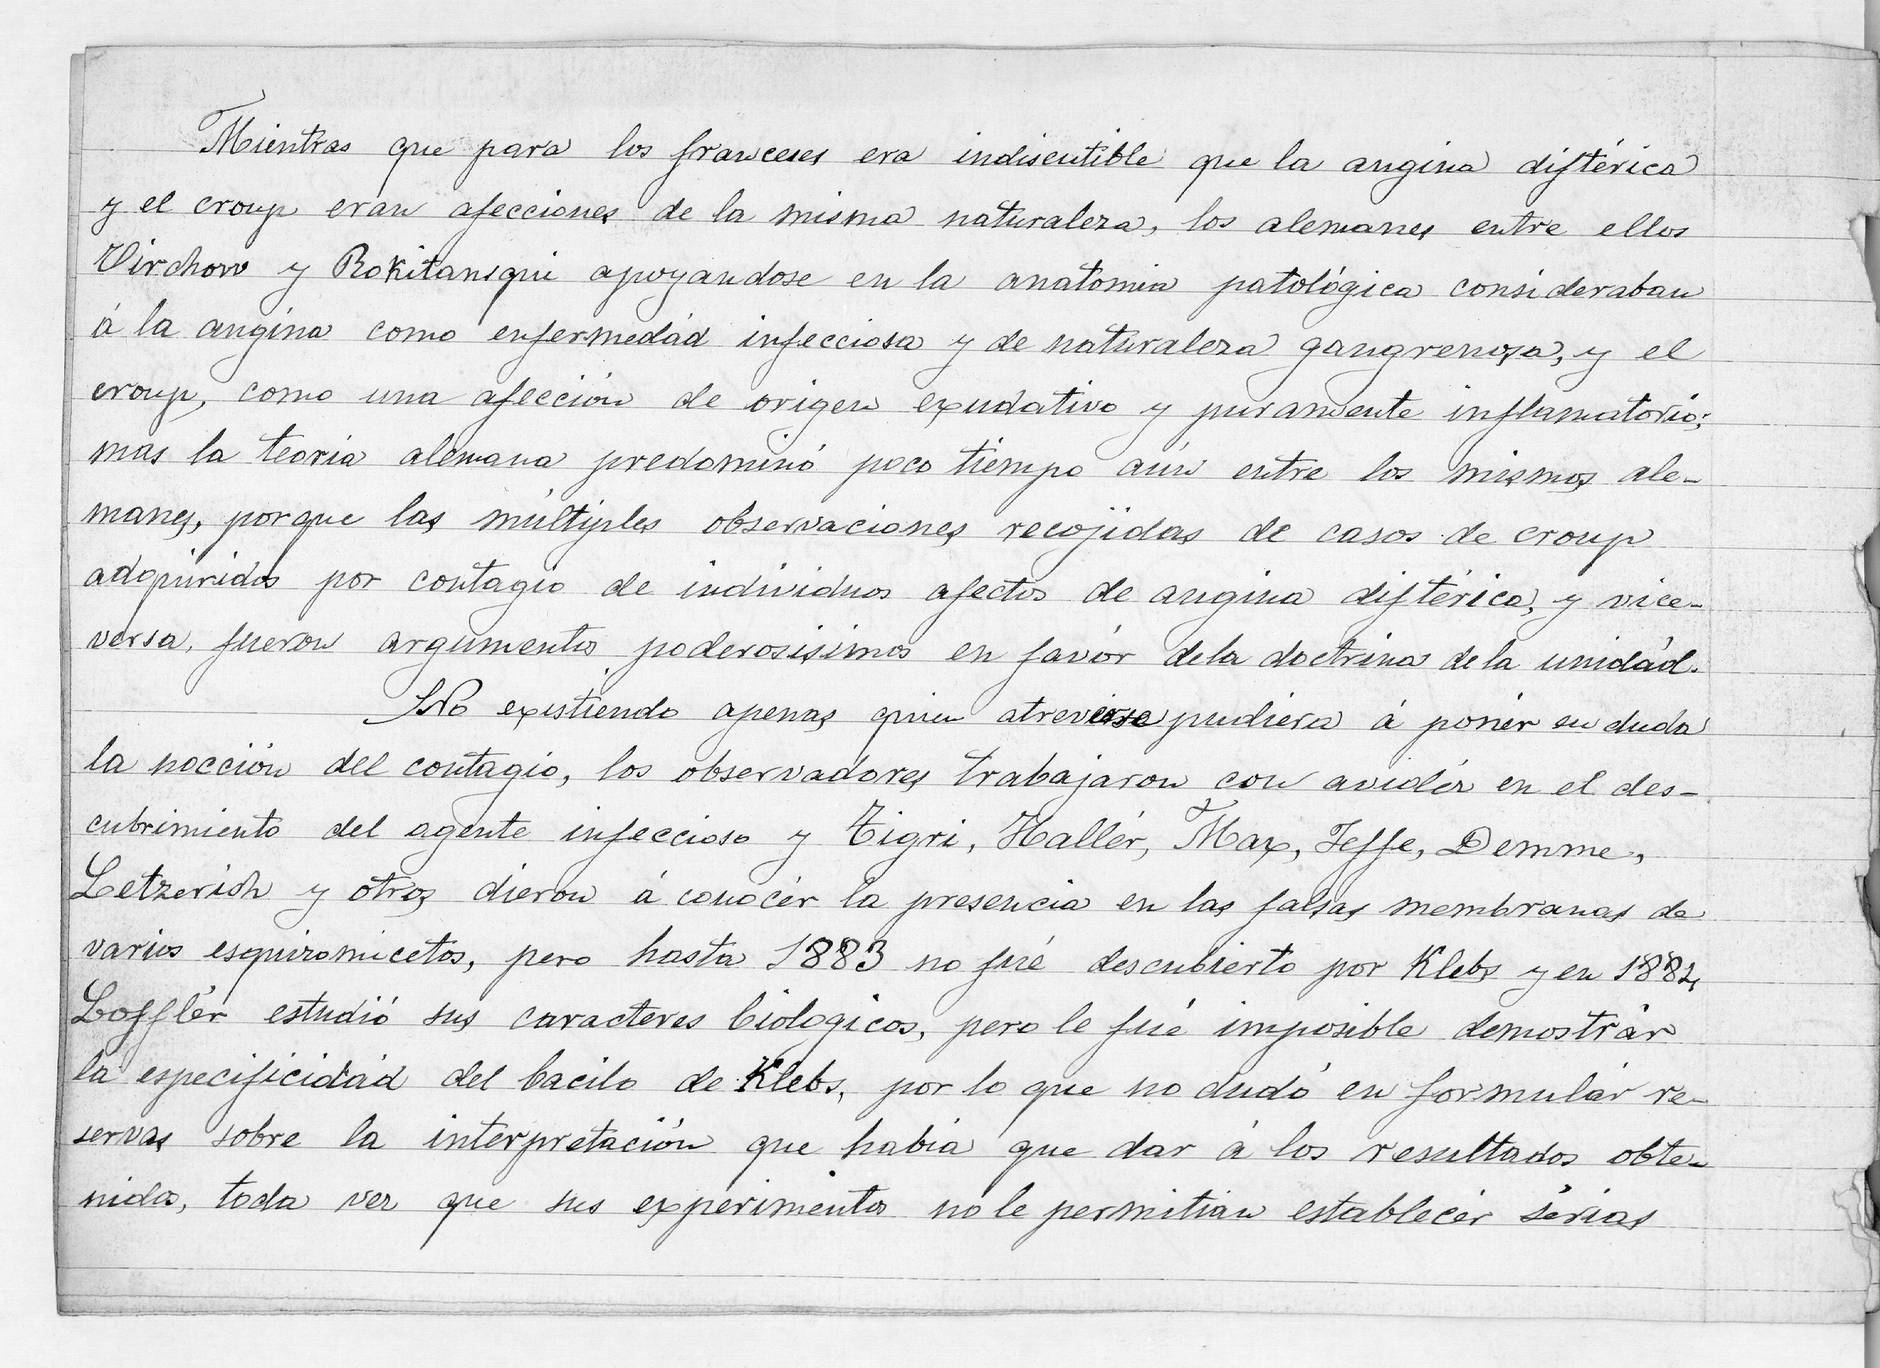 Mientras que para los franceses era indiscutible que la angina diftérica
y el croup eran afecciones de la misma naturaleza, los alemanes entre ellos
Virchow y Rokitansqui apoyandose en la anatomia patológica consideraban
á la angina como enfermedád infecciosa y de naturaleza gangrenosa, y el
croup, como una afección de origen exudativo y puramente inflamatorio;
mas la teoria alemana predominó poco tiempo aún entre los mismos ale-
manes, porque las múltiples observaciones recojidas de casos de croup
adquiridos por contagio de individuos afectos de angina diftérica, y vice-
versa, fueron argumentos poderosisimos en favór dela doctrina de la unidád.
No existiendo apenas quien atreverse pudiera á ponér en duda
la nocción del contagio, los observadores trabajaron con avidéz en el des-
cubrimiento del agente infeccioso y Tigri, Hallér, Max, Jeffe, Demme,
Letzerish y otros dieron á conocér la presencia en las falsas membranas de
varios esquizomicetos, pero hasta 1883 no fué descubierto por Klebs y en 1884
Loffler estudió sus caracteres biologicos, pero le fué imposible demostrár
la especificidád del bacilo de Klebs, por lo que no dudó en formulár re-
servas sobre la interpretación que habia que dar á los resultados obte-
nidos, toda vez que sus experimentos no le permitian establecér sérias